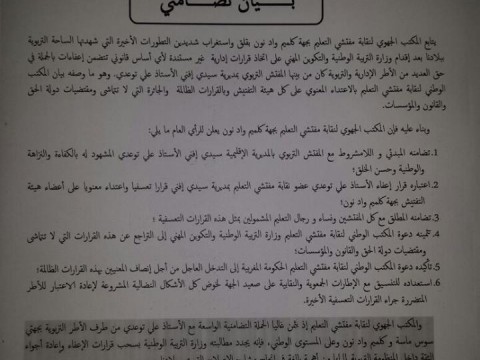 بيان تضامني
يتابع المكتب الجهوي لنقابة مفتشي التعليم بجهة كلميم واد نون بقلق واستغراب شديدين التطورات الأخيرة التي شهدتها الساحة التربوية
ببلادنا بعد إقدام وزارة التربية الوطنية والتكوين المهني على اتخاذ قرارات إدارية غير مستندة لأي أساس قانوني تتضمن إعفاءات بالجملة في
حق العديد من الأطر الإدارية والتربوية كان من بينها المفتش التربوي بمديرية سيدي إفني الأستاذ علي توعدي. وهو ما وصفه بيان المكتب
الوطني لنقابة مفتشي التعليم بالاعتداء المعنوي على كل هيئة التفتيش وبالقرارات الظالمة والجائرة التي لا تتماشى ومقتضيات دولة الحق
والقانون والمؤسسات.
وبناء عليه فإن المكتب الجهوي لنقابة مفتشي التعليم بجهة كلميم واد نون يعلن للرأي العام ما يلي:
1. تضامنه المبدئي و اللامشروط مع المفتش التربوي بالمديرية الإقليمية سيدي إفني الأستاذ علي توعدي المشهود له بالكفاءة والنزاهة
والوطنية وحسن الخلق؛
2. اعتباره قرار إعفاء الأستاذ علي توعدي عضو نقابة مفتشي التعليم بمديرية سيدي إفني قرارا تعسفيا واعتداء معنويا على أعضاء هيئة
التفتيش بجهة كلميم واد نون؛
3. تضامنه المطلق مع كل المفتشين ونساء و رجال التعليم المشمولين بمثل هذه القرارات التعسفية؛
4. تثمينه دعوة المكتب الوطني لنقابة مفتشي التعليم وزارة التربية الوطنية والتكوين المهني إلى التراجع عن هذه القرارات التي لا تتماشى
ومقتضيات دولة الحق والقانون والمؤسسات؛
5. تأكيده دعوة المكتب الوطني لنقابة مفتشي التعليم الحكومة المغربية إلى التدخل العاجل من أجل إنصاف المعنيين بهذه القرارات الظالمة؛
6. استعداده للتنسيق مع الإطارات الجمعوية والنقابية على صعيد الجهة لخوض كل الأشكال النضالية المشروعة لإعادة الاعتبار للأطر
المتضررة جراء القرارات التعسفية الأخيرة.
والمكتب الجهوي لنقابة مفتشي التعليم إذ ثمن غاليا الحملة التضامنية الواسعة مع الأستاذ علي توعدي من طرف الأطر التربوية بجهتي
سوس ماسة و كلميم واد نون وعلى المستوى الوطني، فإنه يجدد مطالبته وزارة التربية الوطنية بسحب قرارات الإعفاء وإعادة أجواء